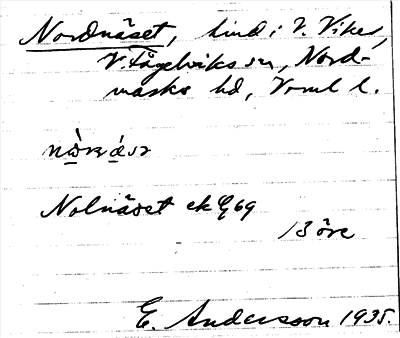 Nordnäset, lind i V. Viker,
V. Fågelviks sn, Nord-
marks hd, Vrml l.
Nolnäset ek G 69
13 öre
E. Andersson 1935.